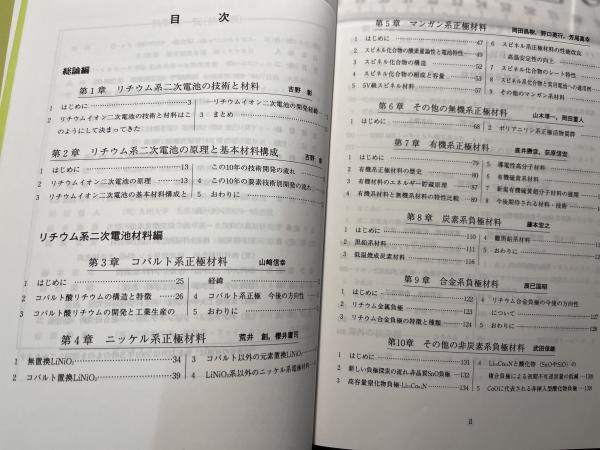 目　次
総論編
第1章　リチウム系二次電池の技術と材料　吉野 彰
1 はじめに……3
2 リチウムイオン二次電池の技術と材料はこ
のようにして決まってきた
―リチウムイオン二次電池の開発経緯―
3 まとめ
第2章　リチウム系二次電池の原理と基本材料構成　吉野
1 はじめに……13
2 リチウムイオン二次電池の原理……13
3 リチウムイオン二次電池の基本材料構成と
この10年の技術開発の流れ
4 この10年の要素技術別開発の流れ
5 おわりに
リチウム系二次電池材料編
第3章　コバルト系正極材料　山﨑信幸
1 はじめに……25
2 コバルト酸リチウムの構造と特徴……26
3 コバルト酸リチウムの開発と工業生産の
経緯
4 コバルト系正極 今後の方向性
5 おわりに
第4章　ニッケル系正極材料　荒井 創，櫻井庸司
1 無置換LiNiO₂……34
2 コバルト置換LiNiO₂……39
3 コバルト以外の元素置換LiNiO₂
4 LiNiO₂系以外のニッケル系電極材料
第5章　マンガン系正極材料　岡田昌樹，野口英行，芳尾真幸
1 はじめに……47
2 スピネル化合物の酸素量論性と電池特性……49
3 スピネル化合物の構造……52
4 スピネル化合物の組成と容量……53
5 5V級スピネル材料……57
6 スピネル系正極材料の性能改良
：高温安定性の向上
7 スピネル化合物のレート特性
8 スピネル系化合物と実用電池への適用例
9 その他のマンガン系材料
第6章　その他の無機系正極材料　山木準一，岡田重人
1 はじめに……68
2 ポリアニオン系正極活物質群
第7章　有機系正極材料　直井勝彦，荻原信宏
1 はじめに……79
2 有機系正極材料の歴史……80
3 有機材料のエネルギー貯蔵原理……87
4 有機系材料と無機系材料の特性比較……89
5 導電性高分子材料
6 有機硫黄系材料
7 新規有機硫黄超分子材料の展開
8 今後期待される材料・技術
第8章　炭素系負極材料　藤本宏之
1 はじめに……110
2 黒鉛系材料……111
3 低温焼成炭素材料……116
4 難黒鉛系材料
5 おわりに
第9章　合金系負極材料　辰巳国昭
1 はじめに……122
2 リチウム金属負極……123
3 リチウム合金負極の特徴と種類……124
4 リチウム合金負極 今後の方向性
について……127
5 おわりに……128
第10章　その他の非炭素系負極材料　武田保雄
1 はじめに……131
2 新しい負極探索の流れ-非晶質SnO負極……132
3 高容量窒化物負極-Li₂.₆Co₀.₄N……134
4 Li₂.₆Co₀.₄Nと酸化物（SnOやSiO）の
複合負極による初期不可逆容量の低減……138
5 CoOに代表される非挿入型酸化物負極……138
II